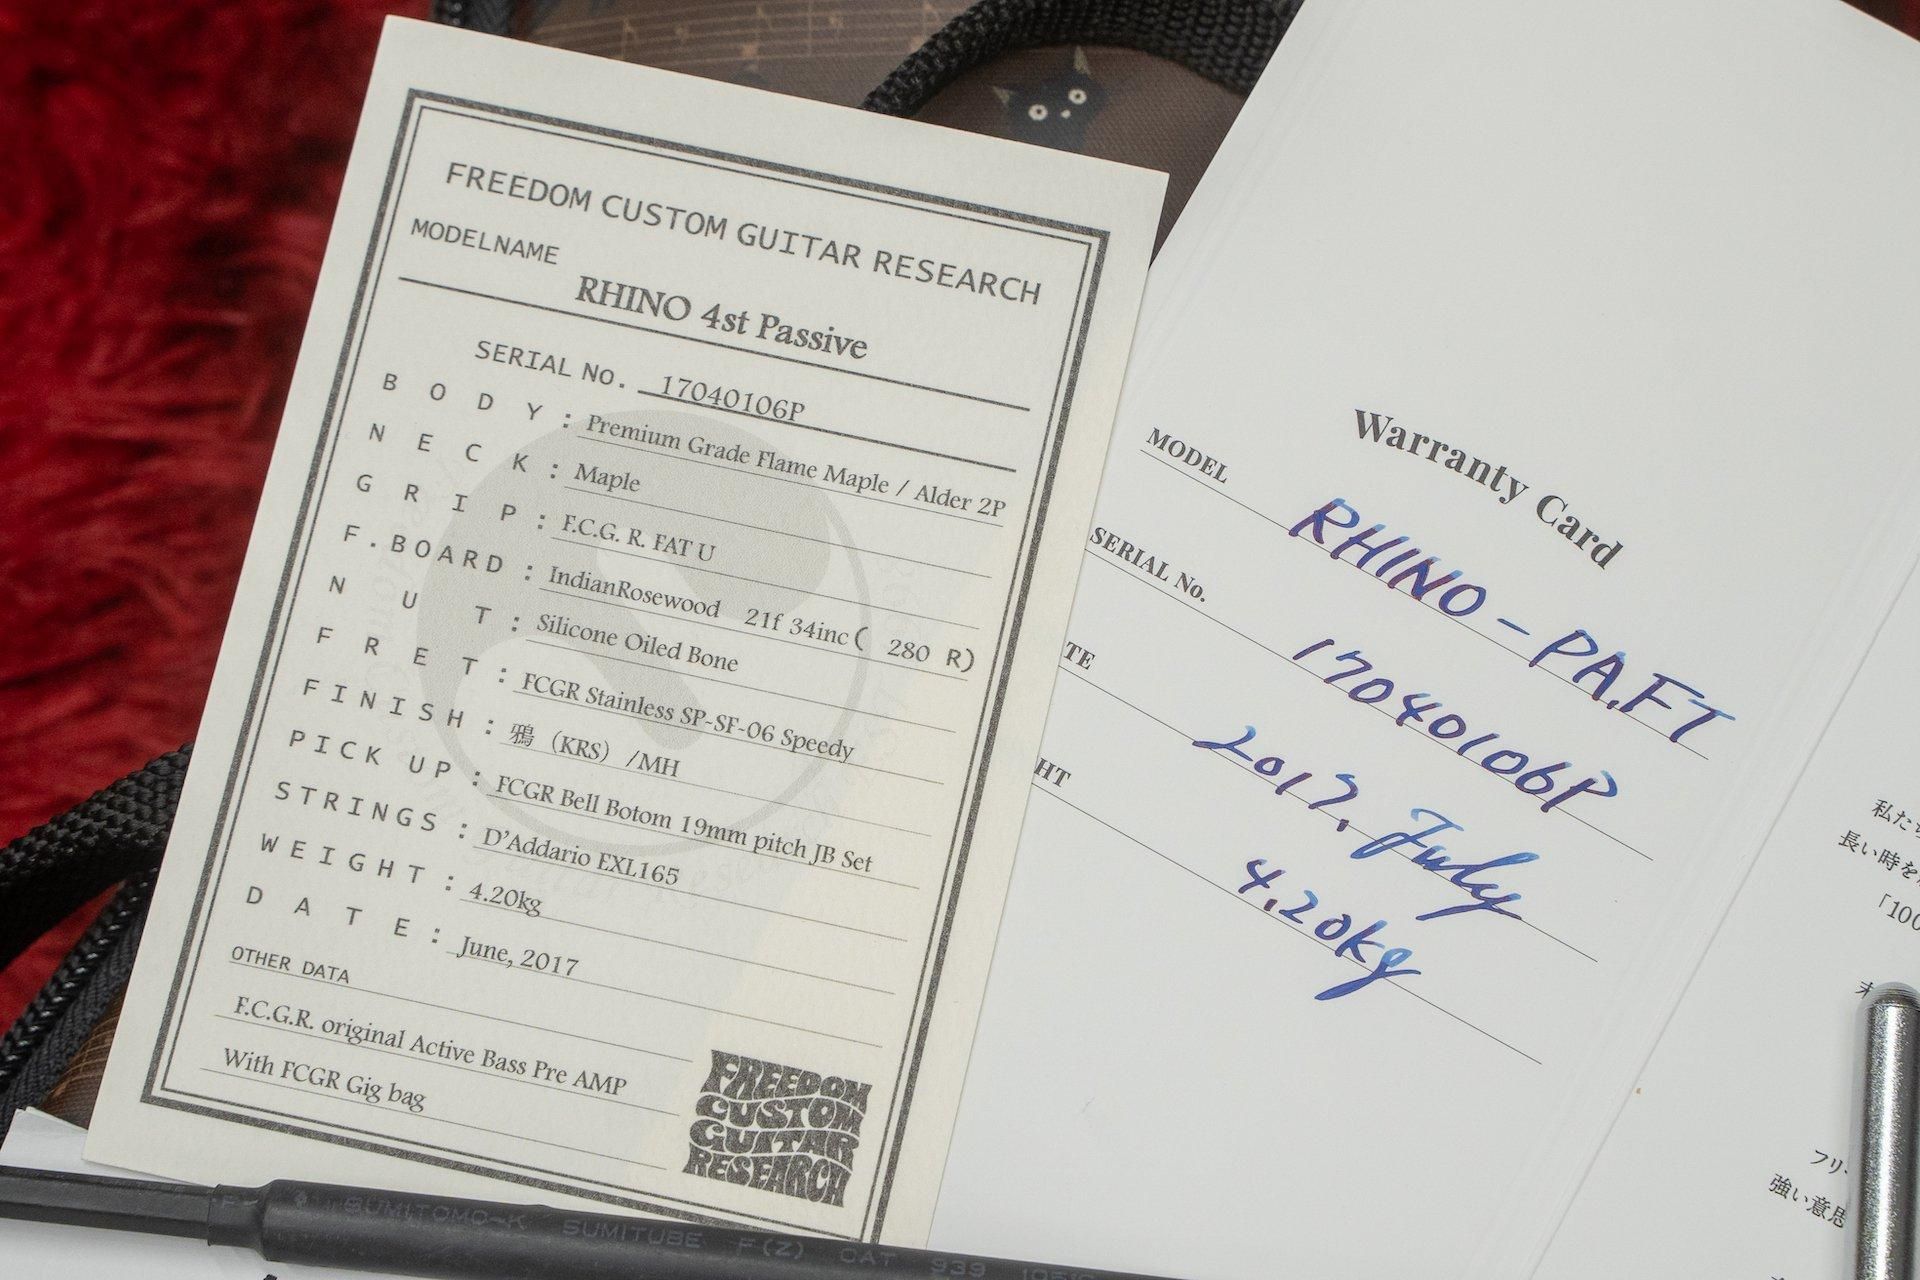 FREEDOM CUSTOM GUITAR RESEARCH
MODELNAME
RHINO 4st Passive
SERIAL No. 17040106P
BODY: Premium Grade Flame Maple / Alder 2P
NECK: Maple
GRIP: F.C.G. R. FAT U
F.BOARD: IndianRosewood 21f 34inc( 280 R)
NUT: Silicone Oiled Bone
FRET: FCGR Stainless SP-SF-06 Speedy
FINISH: 鴉（KRS）/MH
PICK UP: FCGR Bell Botom 19mm pitch JB Set
STRINGS: D'Addario EXL165
WEIGHT: 4.20kg
DATE: June, 2017
OTHER DATA
F.C.G.R. original Active Bass Pre AMP
With FCGR Gig bag
FREEDOM
CUSTOM
GUITAR
RESEARCH
Warranty Card
MODEL RHINO-PA.FT
SERIAL No. 17040106P
TE 2017. July
HT 4.20kg
私たち
長い時を
「100
フリ
強い意思
SUMITOMO-K SUMITUBE F(Z) CAT 939